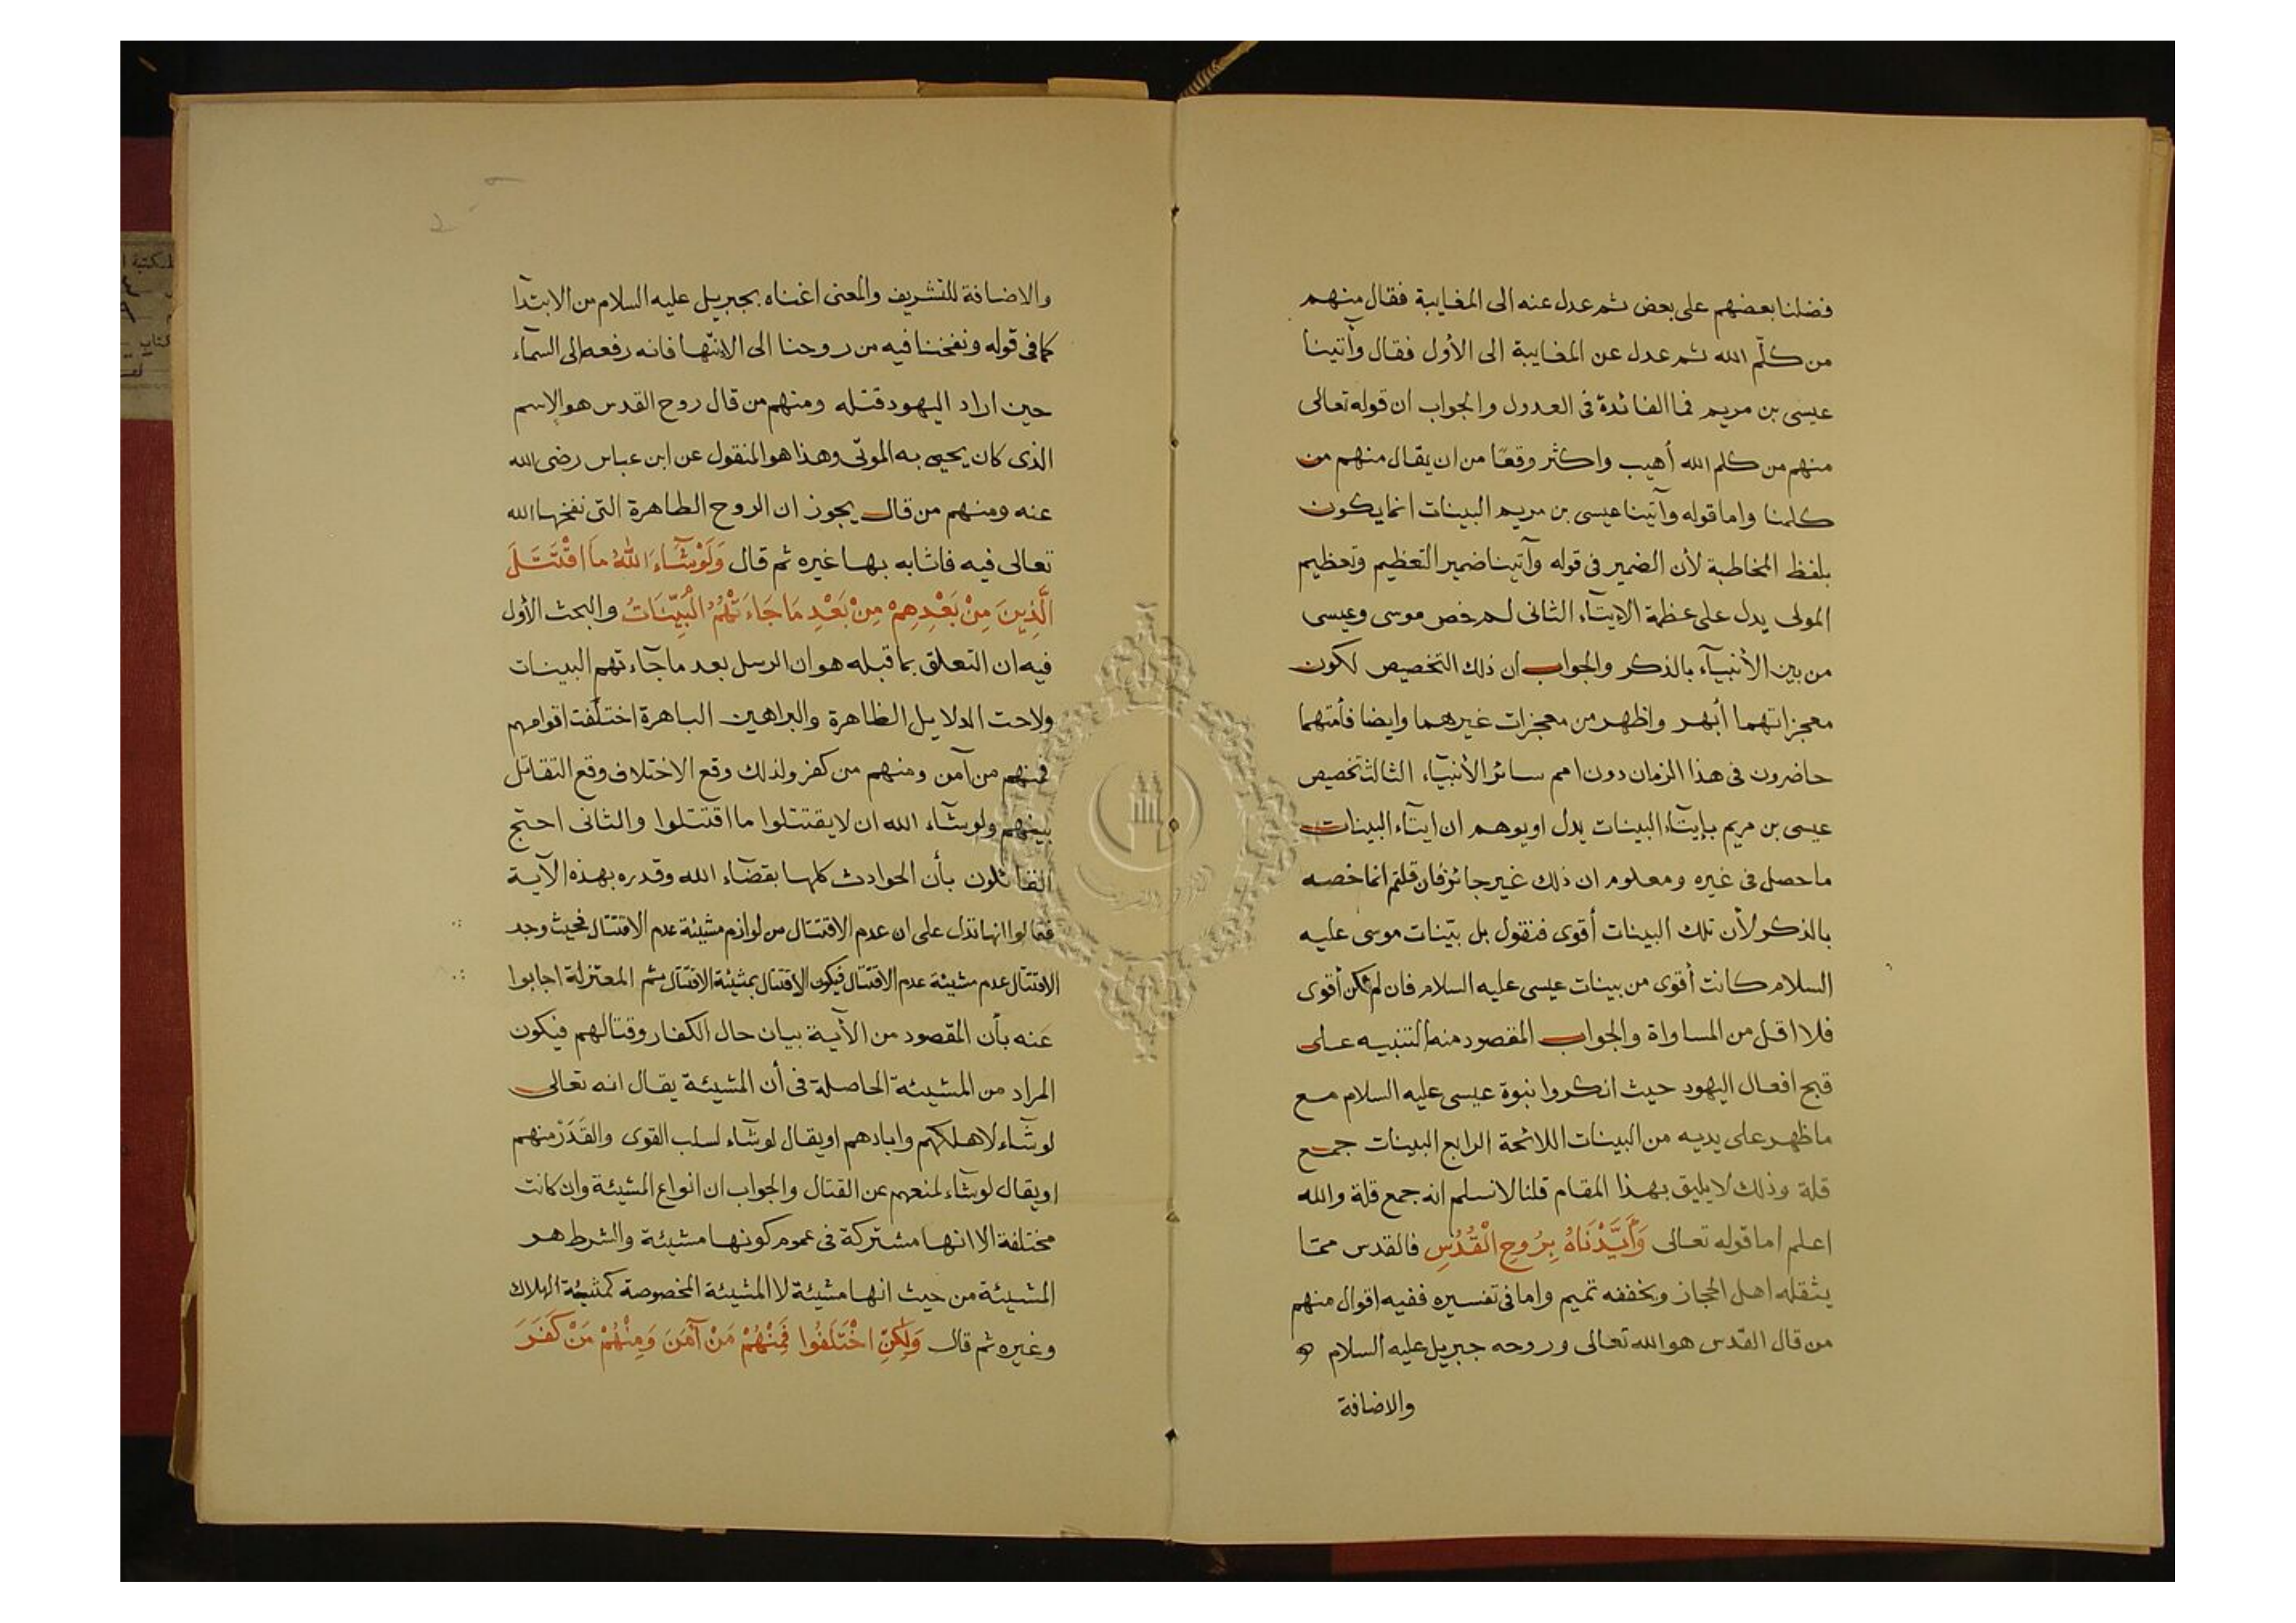 فضلنا بعضهم على بعض ثم عدل عنه الى المغايبة فقال منهم
من كلّم الله ثم عدل عن المغايبة الى الأول فقال وآتينا
عيسى بن مريم فما الفائدة فى العدول والجواب ان قوله تعالى
منهم من كلم الله أهيب واكثر وقعًا من ان يقال منهم من
كلمنا واما قوله وآتينا عيسى بن مريم البينات انما يكون
بلفظ المخاطبة لأن الضمير فى قوله وآتينا ضمير التعظيم وتعظيم
المولى يدل على عظمة الايتآء الثانى لم خص موسى وعيسى
من بين الأنبيآء بالذكر والجواب ان ذلك التخصيص لكون
معجزاتهما أبهر واظهر من معجزات غيرهما وايضا فأمتهما
حاضرون فى هذا الزمان دون امم سائر الأنبيآء الثالث تخصيص
عيسى بن مريم بإيتآء البينات يدل او يوهم ان ايتآء البينات
ما حصل فى غيره ومعلوم ان ذلك غير جائز فان قلتم انما خصه
بالذكر لأن تلك البينات أقوى فنقول بل بيّنات موسى عليه
السلام كانت أقوى من بينات عيسى عليه السلام فان لم تكن أقوى
فلا اقل من المساواة والجواب المقصود منه التنبيه على
قبح افعال اليهود حيث انكروا نبوة عيسى عليه السلام مع
ما ظهر على يديه من البينات اللائحة الرابع البينات جمع
قلة وذلك لا يليق بهذا المقام قلنا لا نسلم انه جمع قلة والله
اعلم اما قوله تعالى وَأَيَّدْنَاهُ بِرُوحِ الْقُدُسِ فالقدس ممّا
يثقله اهل الحجاز ويخففه تميم واما فى تفسيره ففيه اقوال منهم
من قال القدس هو الله تعالى وروحه جبريل عليه السلام
والاضافة
والاضافة للتشريف والمعنى اغناه بجبريل عليه السلام من الابتدآ
كما فى قوله ونفخنا فيه من روحنا الى الانتها فانه رفعه الى السمآء
حين اراد اليهود قتله ومنهم من قال روح القدس هو الإسم
الذى كان يحيى به الموتى وهذا هو المنقول عن ابن عباس رضى الله
عنه ومنهم من قال يجوز ان الروح الطاهرة التى نفخها الله
تعالى فيه فاثابه بها غيره ثم قال وَلَوْ شَآءَ اللهُ مَا اقْتَتَلَ
الَّذِينَ مِنْ بَعْدِهِمْ مِنْ بَعْدِ مَا جَاءَتْهُمُ الْبَيِّنَاتُ والبحث الأول
فيه ان التعلق بما قبله هو ان الرسل بعد ما جآءتهم البينات
ولاحت الدلايل الظاهرة والبراهين الباهرة اختلفت اقوامهم
فمنهم من آمن ومنهم من كفر ولذلك وقع الاختلاف وقع التقاتل
بينهم ولو شآء الله ان لا يقتتلوا ما اقتتلوا والثانى احتج
القائلون بأن الحوادث كلها بقضآء الله وقدره بهذه الآية
فقالوا انها تدل على ان عدم الاقتتال من لوازم مشيئة عدم الاقتتال فحيث وجد
الاقتتال عدم مشيئة عدم الاقتتال فيكون الاقتتال بمشيئة الاقتتال ثم المعتزلة اجابوا
عنه بأن المقصود من الأية بيان حال الكفار وقتالهم فيكون
المراد من المشيئة الحاصلة فى أن المشيئة يقال انه تعالى
لو شآء لاهلكهم وابادهم او يقال لو شآء لسلب القوى والقَدَرْ منهم
او يقال لو شآء لمنعهم عن القتال والجواب ان انواع المشيئة وان كانت
مختلفة الا انها مشتركة فى عموم كونها مشيئة والشرط هو
المشيئة من حيث انها مشيئة لا المشيئة المخصوصة كمشيئة الهلاك
وغيره ثم قال وَلٰكِنِ اخْتَلَفُوا فَمِنْهُمْ مَنْ آمَنَ وَمِنْهُمْ مَنْ كَفَرَ